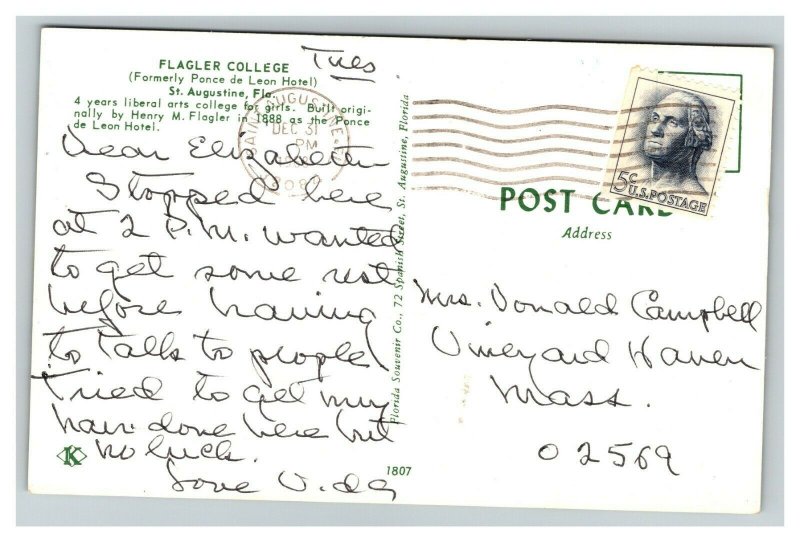 Tues
FLAGLER COLLEGE
(Formerly Ponce de Leon Hotel)
St. Augustine, Fla.
4 years liberal arts college for girls. Built origi-
nally by Henry M. Flagler in 1888 as the Ponce
de Leon Hotel.
Dear Elizabeth
Stopped here
at 2 P.M. wanted
to get some rest
before having
to talk to people
Tried to get my
hair done here but
no luck.
Love
K
1807
Florida Souvenir Co., 72 Spanish Street, St. Augustine, Florida
SAINT AUGUSTINE
DEC 31
PM
5c U.S. POSTAGE
POST CARD
Address
Mrs. Donald Campbell
Vineyard Haven
Mass.
02569